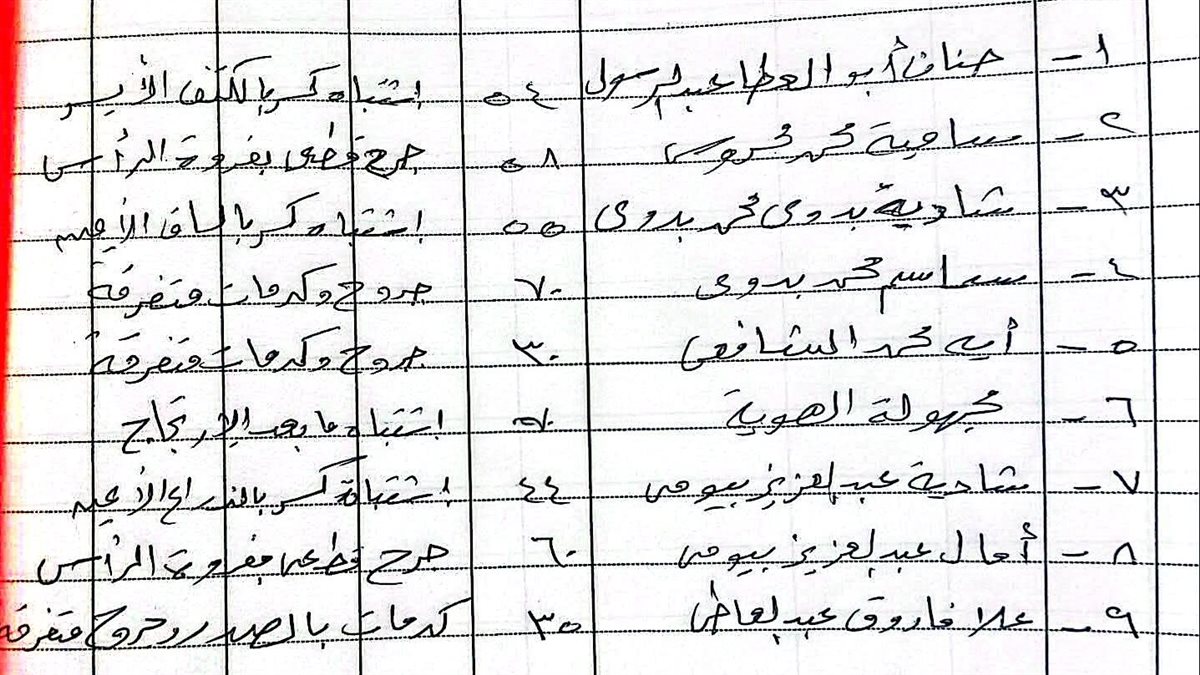 ١- حنان أبو العطا عبد الرسول ٥٤ اشتباه كسر بالكتف الأيسر
٢- سامية محمد محروس ٥٨ جرح قطعى بفروة الرأس
٣- شادية بدوى محمد بدوى ٥٥ اشتباه كسر بالساق الأيمن
٤- سماسم محمد بدوى ٧٠ جروح وكدمات متفرقة
٥- أيه محمد الشافعى ٣٠ جروح وكدمات متفرقة
٦- مجهولة الهوية اشتباه ما بعد الإرتجاج
٧- شادية عبد العزيز بيومى ٤٤ اشتباة كسر بالذراع الأيمن
٨- أمال عبد العزيز بيومى ٦٠ جرح قطعى بفروة الرأس
٩- علا فاروق عبد العاطى ٣٥ كدمات بالصدر وجروح متفرقة